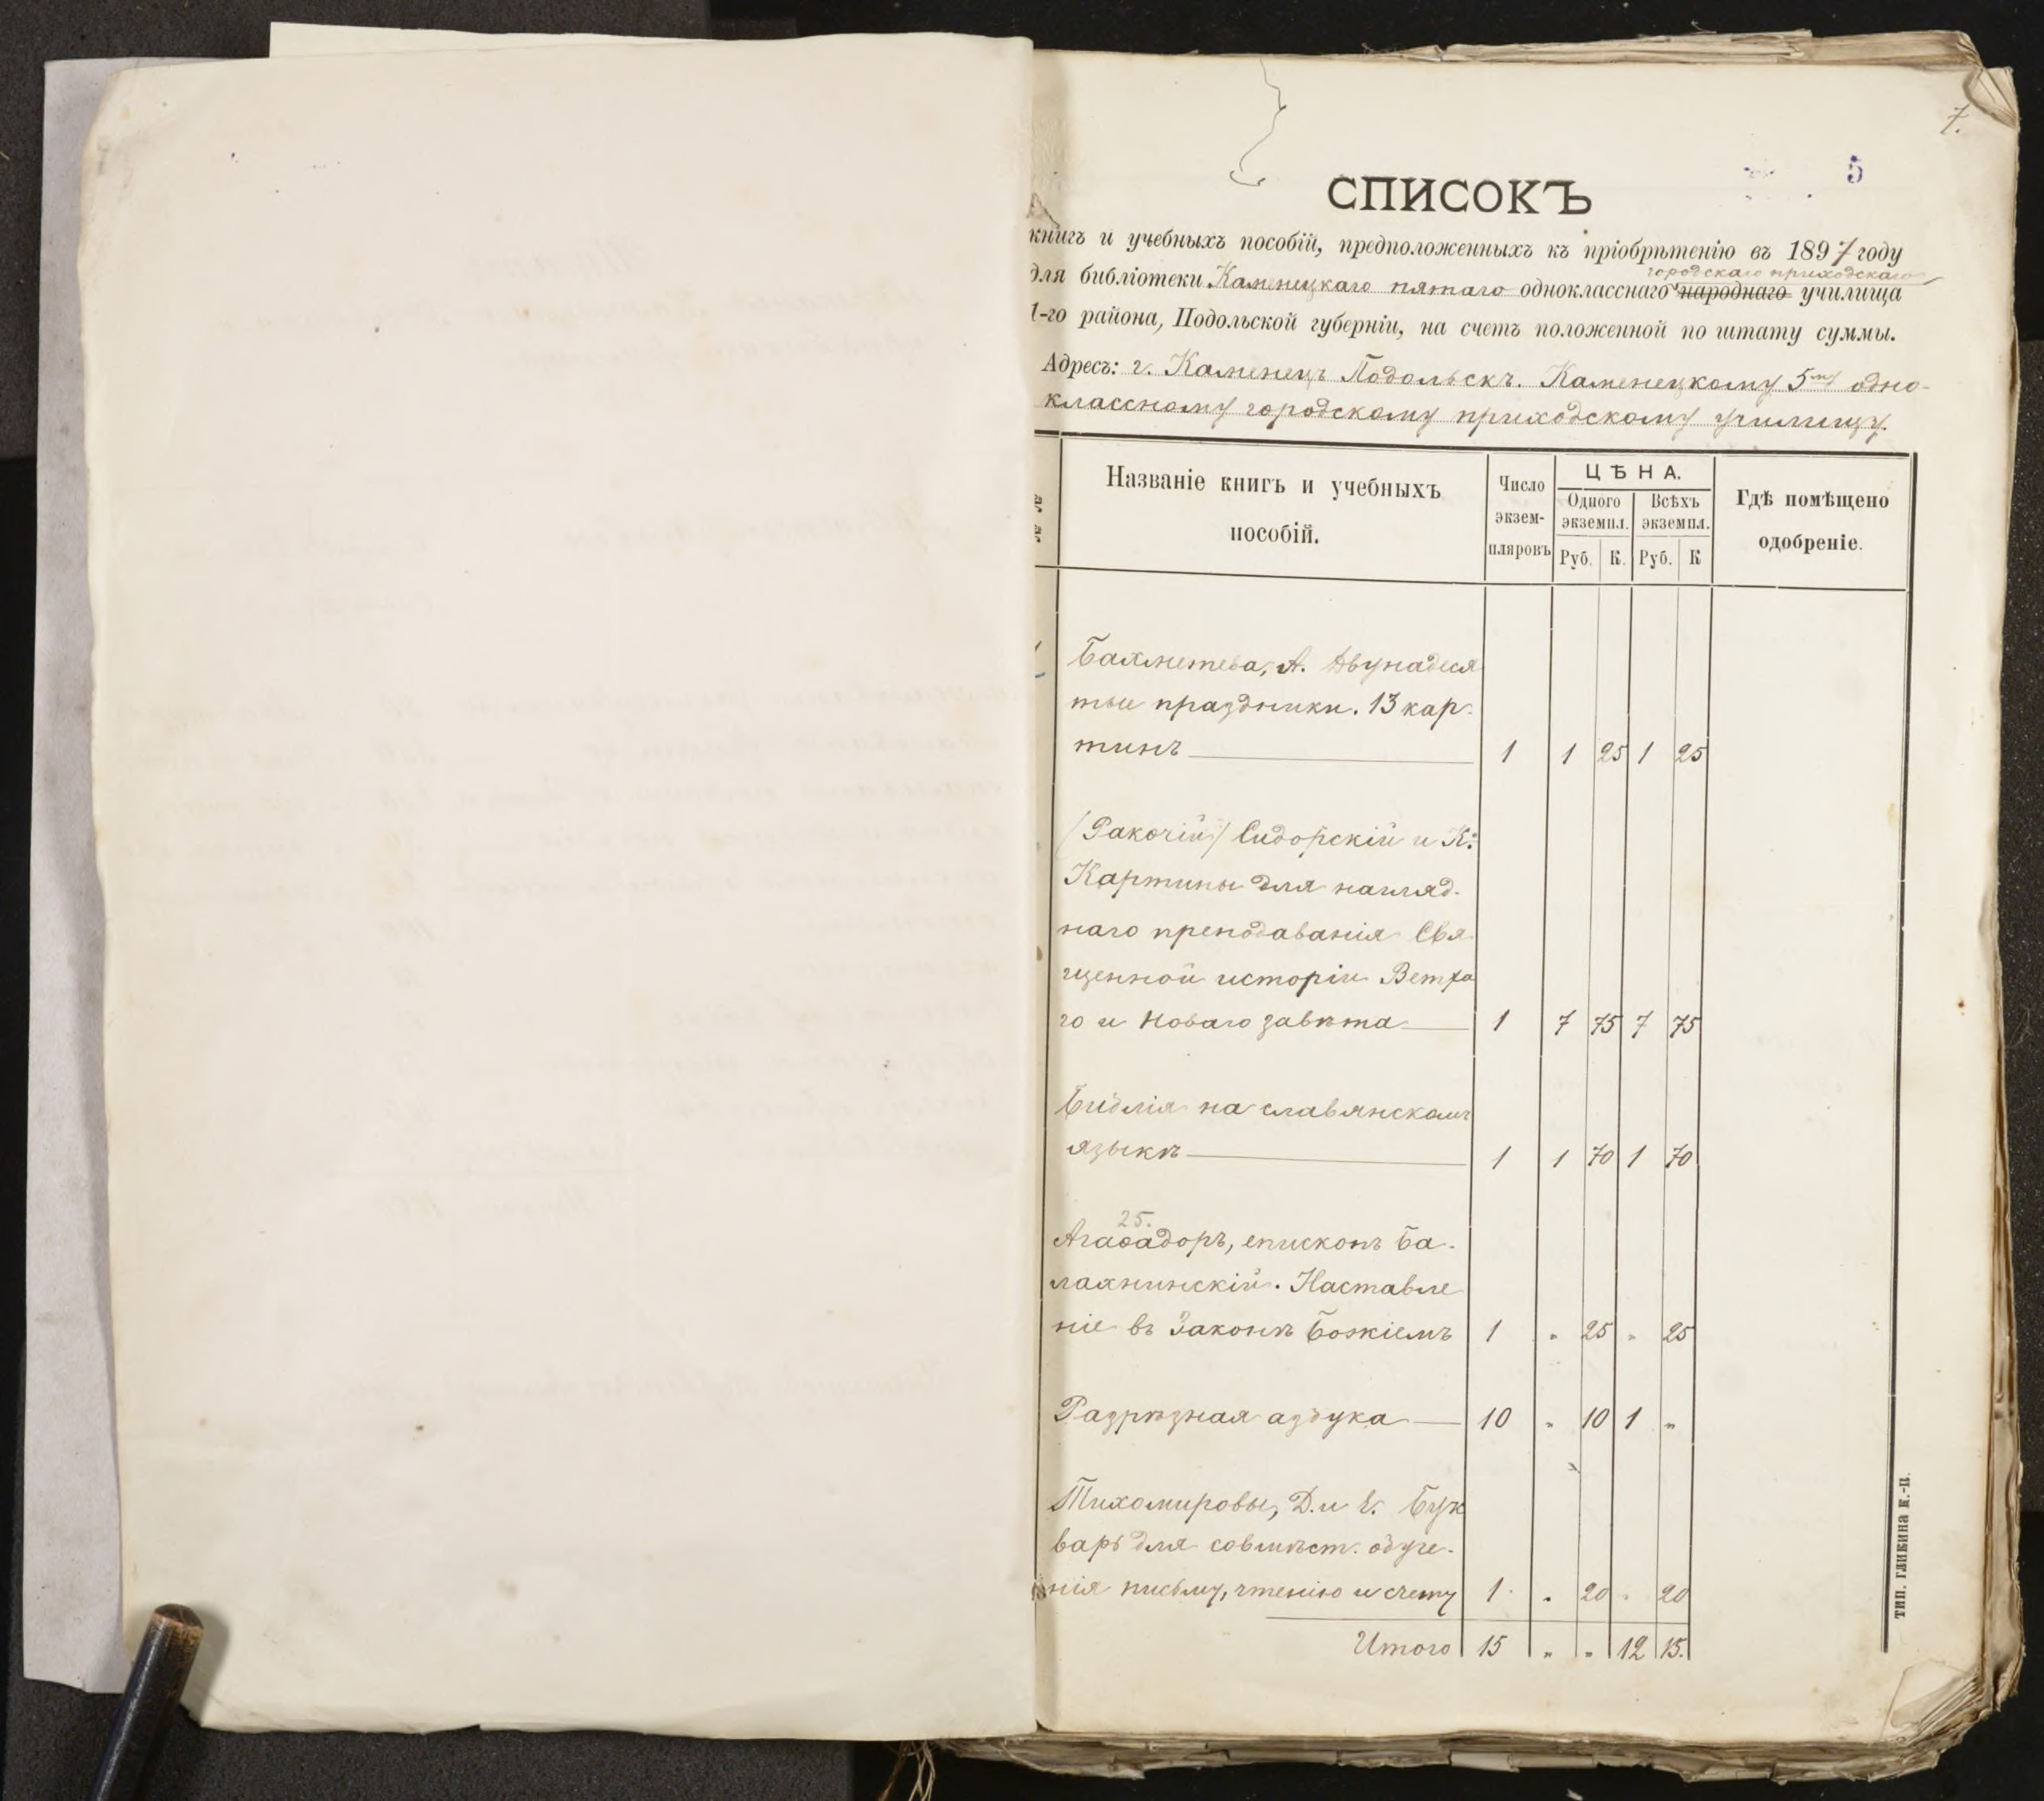 7.
5
СПИСОКЪ
книгъ и учебныхъ пособій, предположенныхъ къ пріобрѣтенію въ 1897 году
городскаго приходскаго
для библіотеки Каменецкаго пятаго одноклассного народнаго училища
1-го района, Подольской губерніи, на счетъ положенной по штату суммы.
Адресъ: г. Каменецъ Подольскъ. Каменецкому 5му одно-
классному городскому приходскому училищу.
Названіе книгъ и учебныхъ пособій.
Число экзем-пляровъ
ЦѢНА.
Одного экземпл.
Всѣхъ экземпл.
Руб. К. Руб. К
Гдѣ помѣщено одобреніе.
Бахметева, А. Двунадеся
тые праздники. 13 кар-
тинъ 1 1 25 1 25
(Ракочій) Сидорскій и Кº
Картины для нагляд-
наго преподаванія Свя
щенной исторіи Ветха
го и Новаго завѣта 1 7 75 7 75
Библія на славянскомъ
языкѣ 1 1 70 1 70
25.
Агаѳадоръ, епископъ Ба-
лахнинскій. Наставле
ніе въ Законѣ Божіемъ 1 " 25 " 25
Разрѣзная азбука 10 " 10 1 "
Тихомировы, Д. и Е. Бук
варь для совмѣст. обуче-
нія письму, чтенію и счету 1 " 20 " 20
Итого 15 " " 12 15.
ТИП. ГЛИКИНА К.-П.